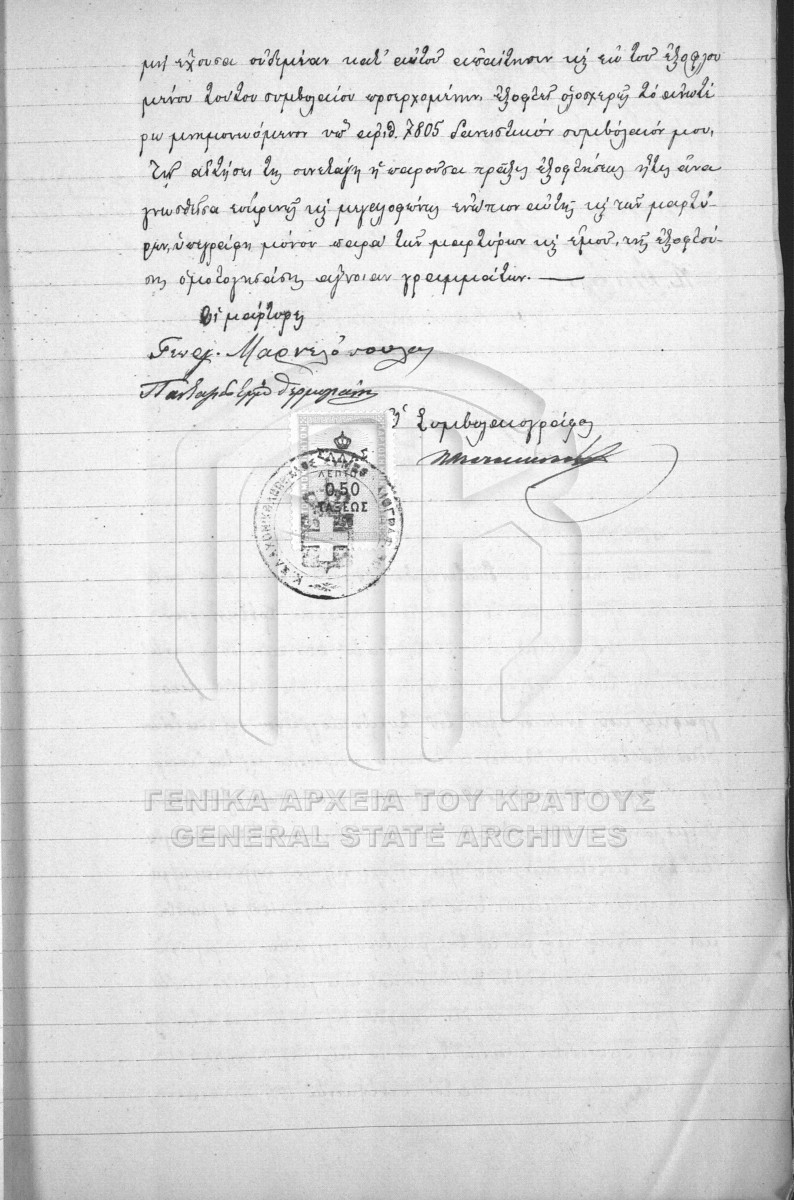 μη έχουσα ουδεμίαν κατ' αυτού απαίτησιν κ εκ του εξοφλου
μένου τούτου συμβολαίου προερχομένην, εξοφλεί ολοσχερώς το ανωτέ
ρω μνημονευόμενον υπ' αριθ. 7805 δανειστικόν συμβόλαιόν μου,
Τη αιτήσει της συνετάγη η παρούσα πράξις εξοφλήσεως ήτις ανα
γνωσθείσα ευκρινώς κ μεγαλοφώνως ενώπιον αυτής κ των μαρτύ-
ρων, υπεγράφη μόνον παρά των μαρτύρων κ εμού, της εξοφλού-
σης ομολογησάσης άγνοιαν γραμμάτων. —
Οι μάρτυρες
Γεωργ. Μαρνελόπουλος
Ο Συμβολαιογράφος
ΕΛΛΑΣ
ΛΕΠΤΑ
0,50
ΤΑΞΕΩΣ
ΓΕΝΙΚΑ ΑΡΧΕΙΑ ΤΟΥ ΚΡΑΤΟΥΣ
GENERAL STATE ARCHIVES